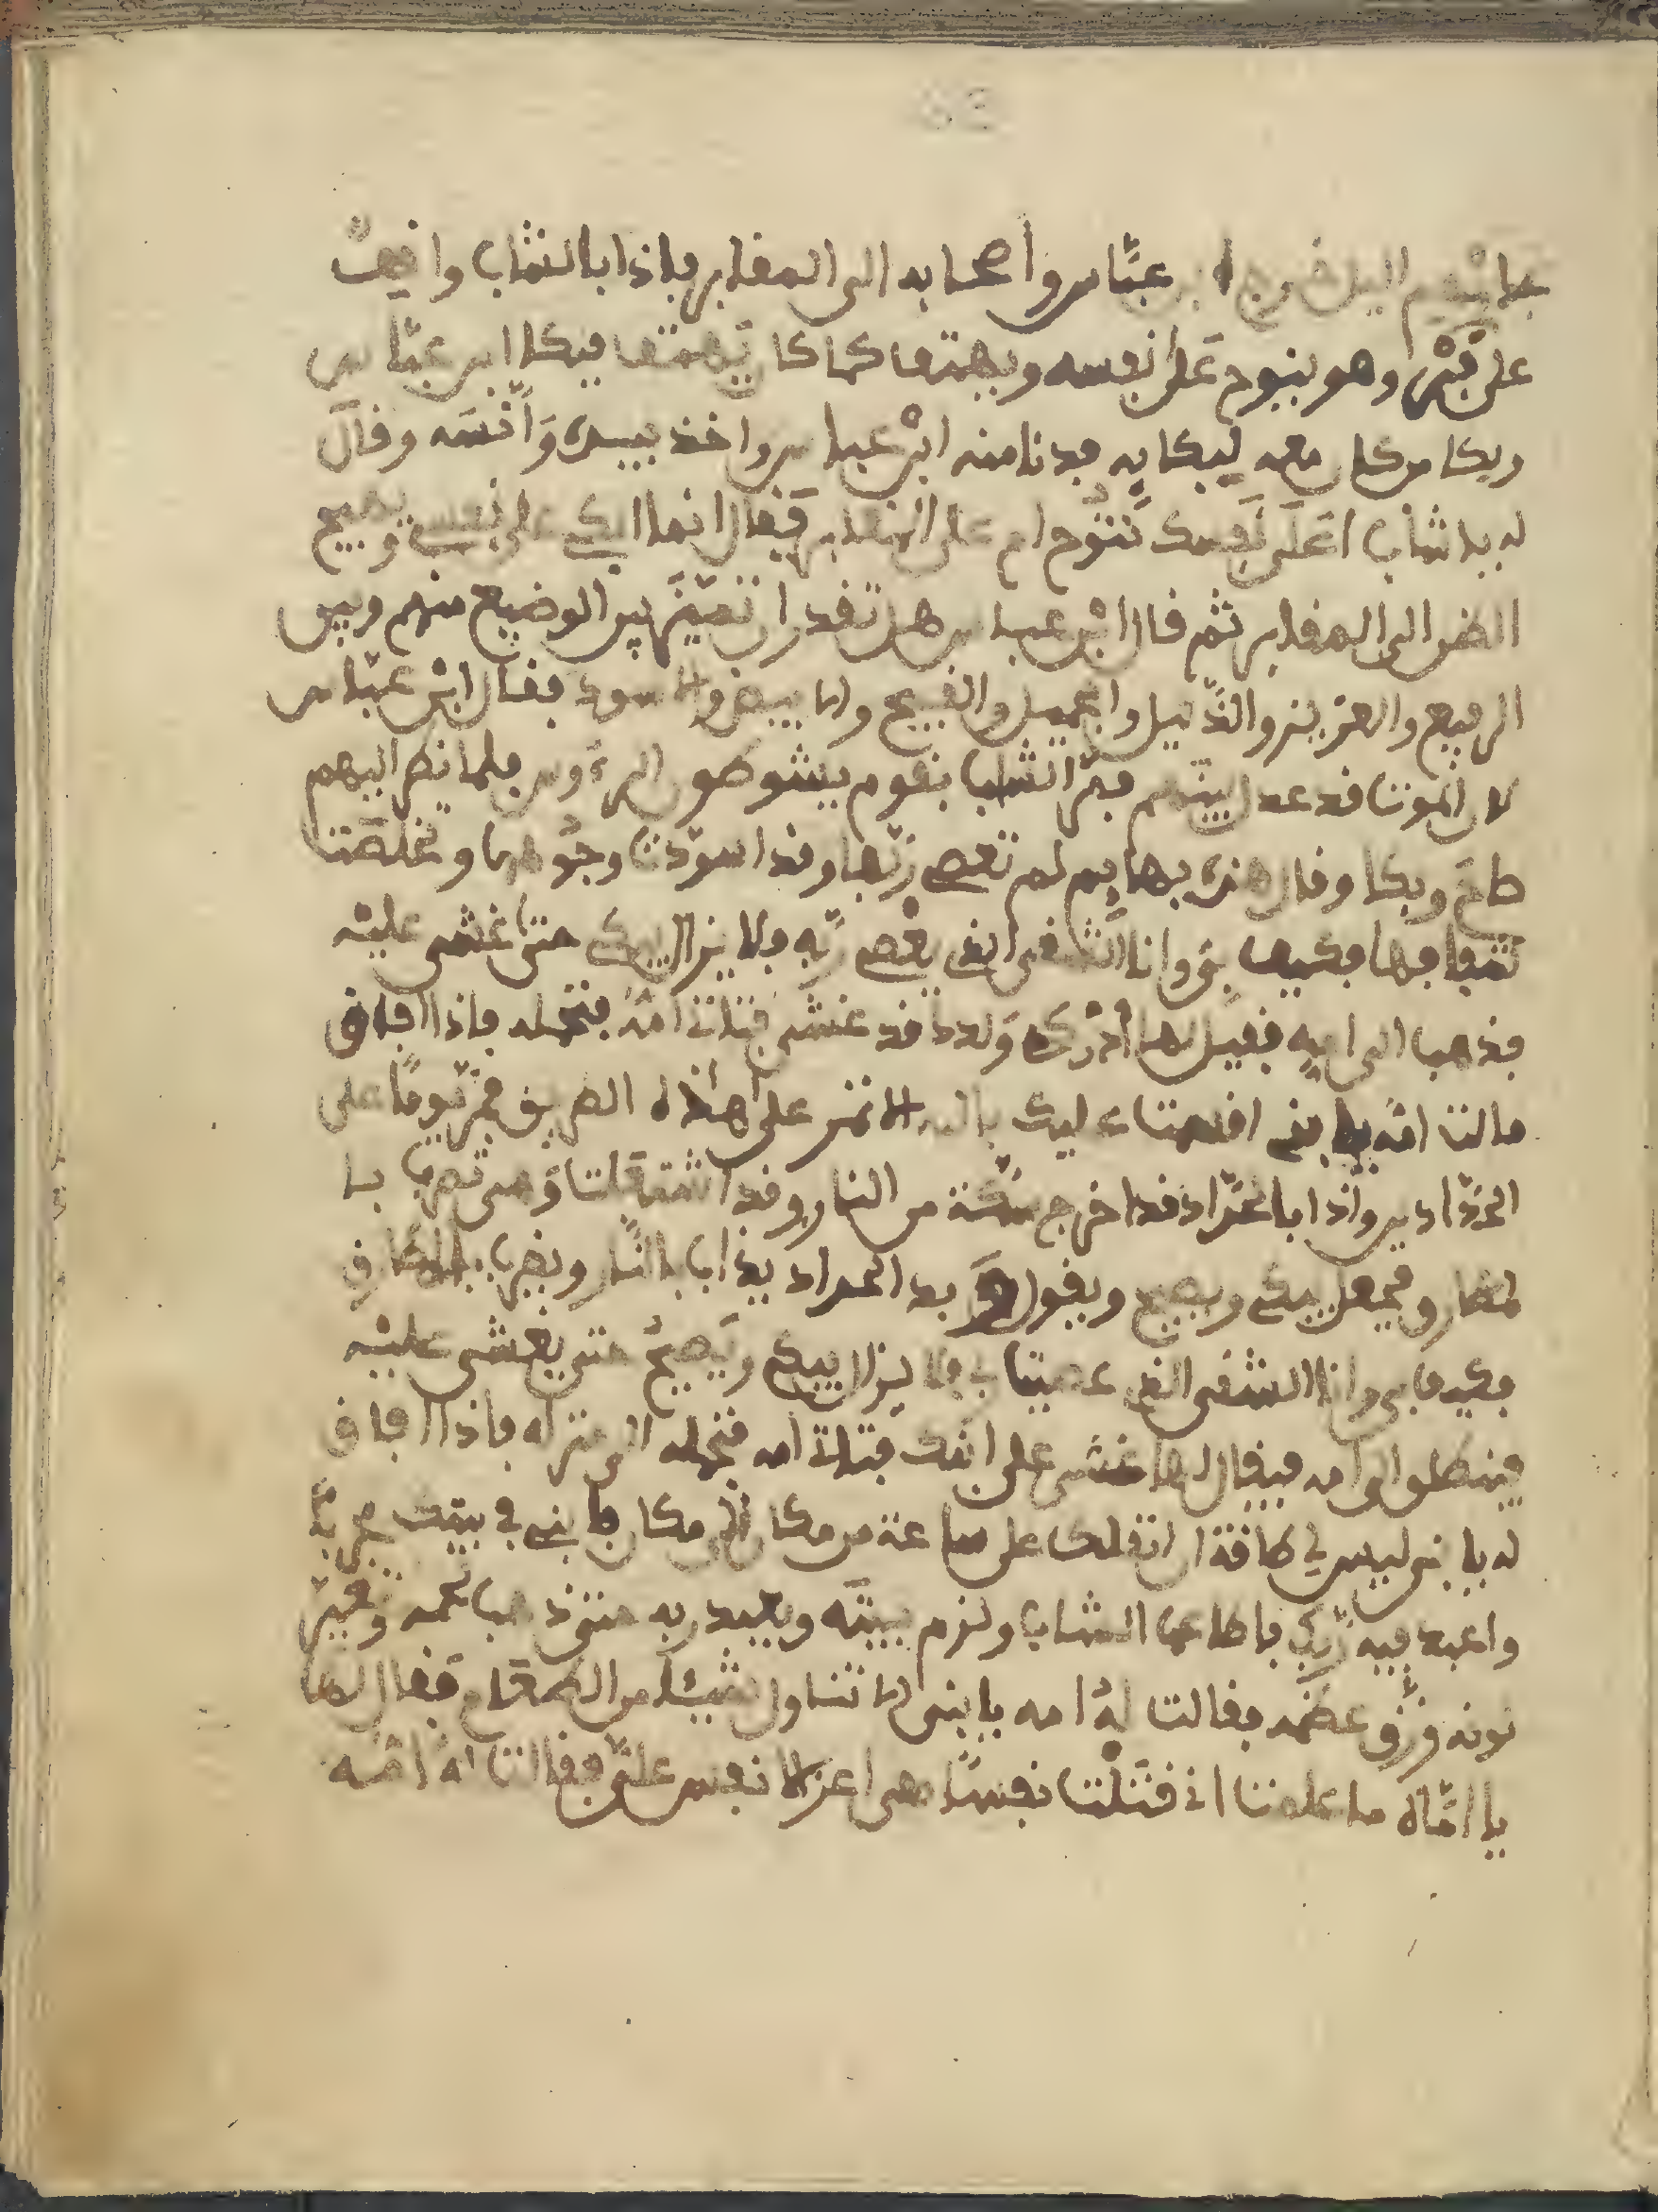 الليل فخرج ابن عبّاس واصحابه الى المقابر فاذا بالشاب واقف
على قبر وهو ينوح على نفسه ويهتف كما كان يهتف فبكا ابن عبّاس
وبكا من كان معه لبكايه فدنا منه ابن عباس واخذ بيده وَأنسَه وقال
له يا شاب اعَلَى نَفسك تَنُوح ام على المقابر فَقال انما ابكي على نفسي وبصيح
الى المقابر ثم قال ابن عباس هل تقدر ان تميّز بين الوضيع منهم وبين
الرفيع والعزيز والذّليل والجميل والقبيح والابيض والاسود فقال ابن عبّاس
لان الموت قد عدل بينهم فمرّ الشاب بقوم يشوطون الرءوس فلما نظر اليهم
صاحَ وبكا وقال هذه بهايم لم تعص ربّها وقد اسوّدت وجُوهها وتخلصت
فكيف بي وانا الشقي الذي يعصي ربّه فلا يزال يبكي حتى غشي عليْه
فذهب الى امه فقيل لها أدْركي وَلدك قد غشي فتاتي امّه فتحمله فاذا افاق
قالت امّه يا بني اقسمت عليك بالله الا تمر على هذه الطريق فمرّ يومًا على
الحدّادين واذا بالحدّاد قد اخرج سكّة من النار وقد اشتعلت وَهى تضرب با
لمطارق فجعل يبكي ويصيح ويقول هَذا الحداد يذاب بالنّار ويضرب بالمطارق
فكيف بي وانا الشقي الذي عصيت ربي فلا يزال يبكي ويَصيحُ حتى يغشى عليْه
فينطلوا الى امه فيقال لها غشي على ابنك فتاتي امه فتحمله الى منزله فاذا افاق
له يا بني ليس لي طاقة ان انقلك على ساعة من مكان الى مكان يا بني في بيتك
واعبد فيه ربّك فاطاعها الشاب ولزم بيتَه ويعبد ربه حتى ذهب لحمه وتغيّر
لونه ورَق عظمه فقالت لهُ امه يا بنى الا تتناول شيئًا من الطعام فقال لها
يا امّاه ما علمت انى قتَلْت نفسًا هى اعز الانفس علىّ فقالت لهُ امّه